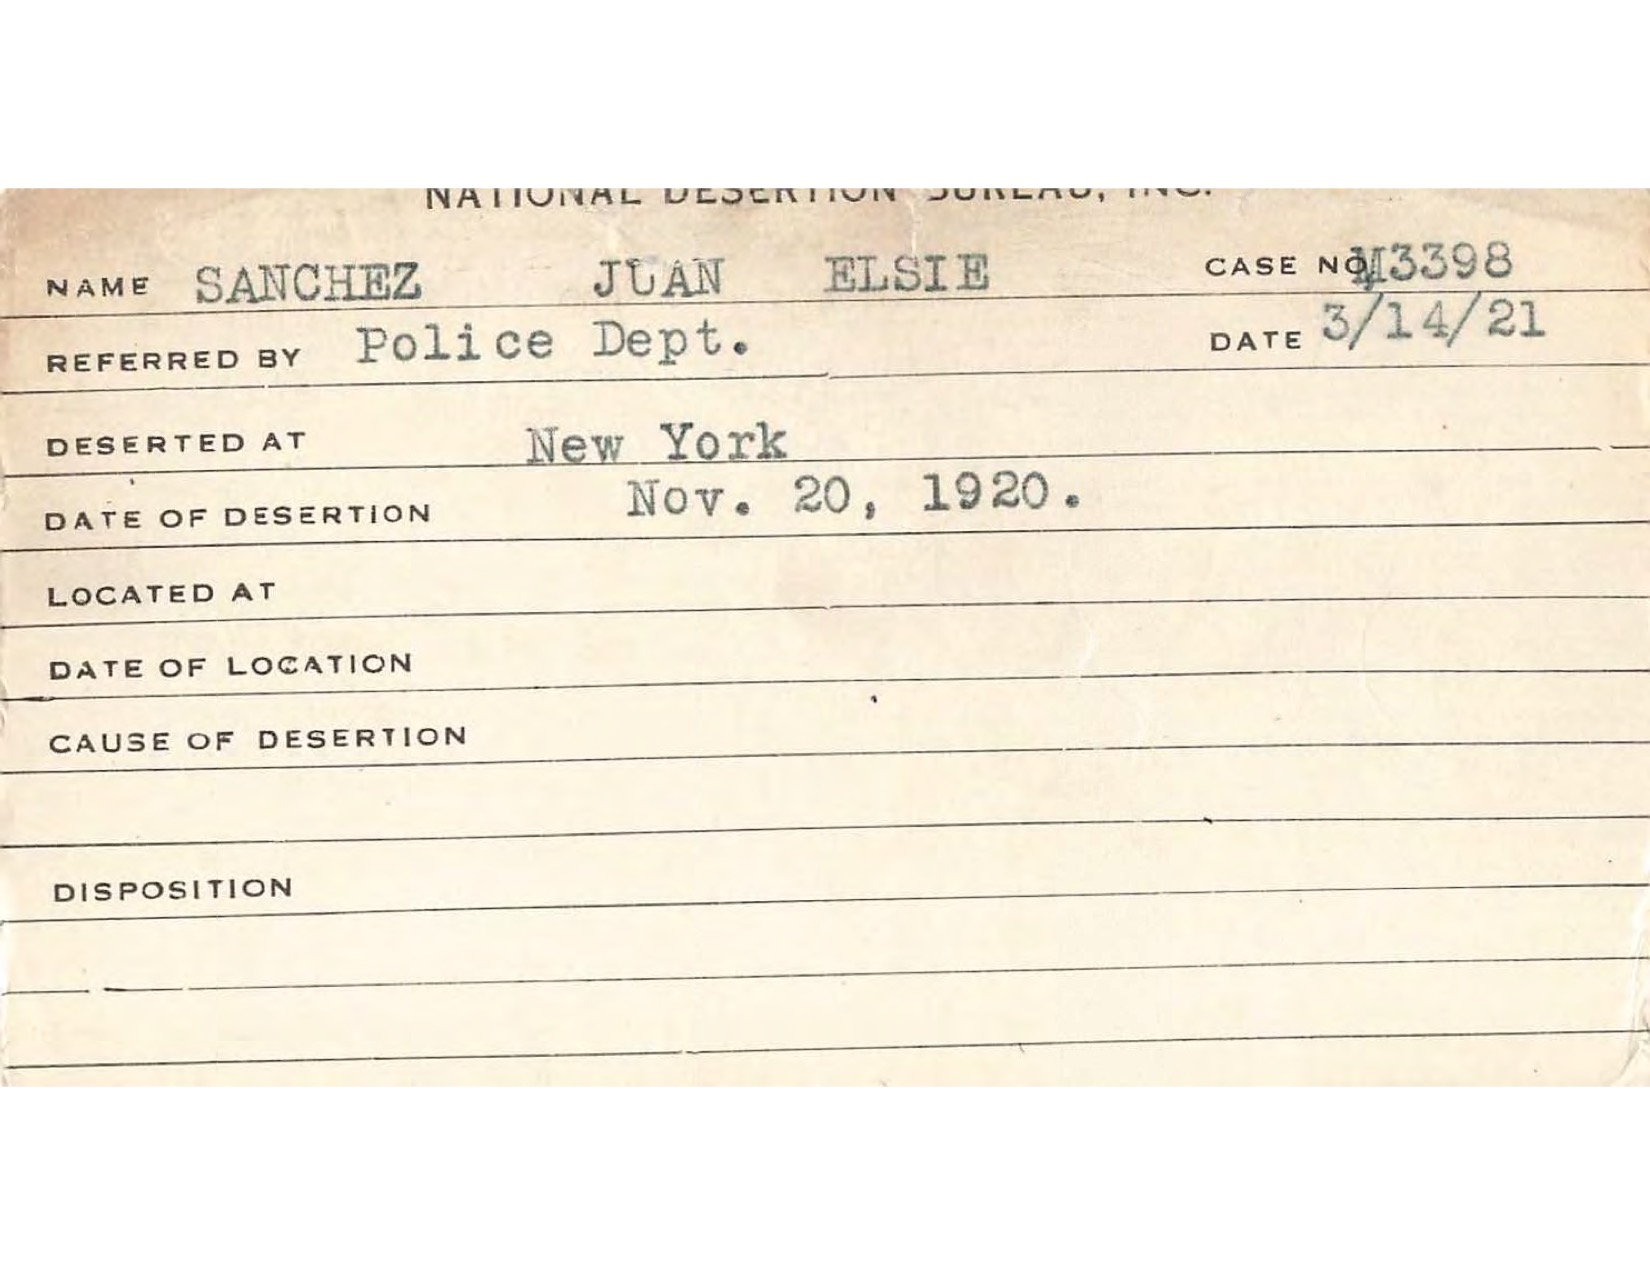 NATIONAL DESERTION BUREAU, INC.
NAME SANCHEZ JUAN ELSIE CASE NO. M3398
REFERRED BY Police Dept. DATE 3/14/21
DESERTED AT New York
DATE OF DESERTION Nov. 20, 1920.
LOCATED AT
DATE OF LOCATION
CAUSE OF DESERTION
DISPOSITION